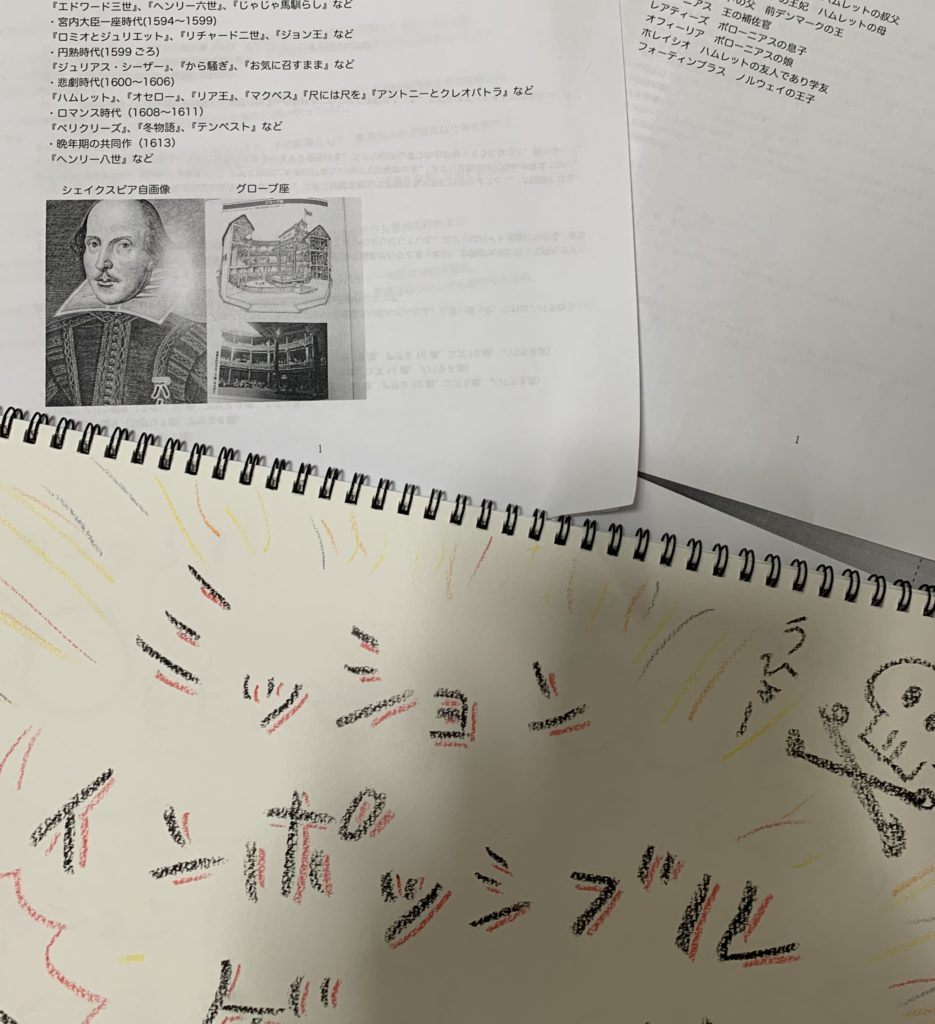 『エドワード三世』、『ヘンリー六世』、『じゃじゃ馬馴らし』など
・宮内大臣一座時代(1594〜1599)
『ロミオとジュリエット』、『リチャード二世』、『ジョン王』など
・円熟時代(1599ごろ)
『ジュリアス・シーザー』、『から騒ぎ』、『お気に召すまま』など
・悲劇時代(1600〜1606)
『ハムレット』、『オセロー』、『リア王』、『マクベス』『尺には尺を』『アントニーとクレオパトラ』など
・ロマンス時代（1608〜1611)
『ペリクリーズ』、『冬物語』、『テンペスト』など
・晩年期の共同作（1613)
『ヘンリー八世』など
シェイクスピア自画像 グローブ座
1
ハムレットの叔父
の王妃 ハムレットの母
の父 前デンマークの王
王の補佐官
レアティーズ ポローニアスの息子
オフィーリア ポローニアスの娘
ホレイシオ ハムレットの友人であり学友
フォーティンブラス ノルウェイの王子
1
ミッション
インポッシブル